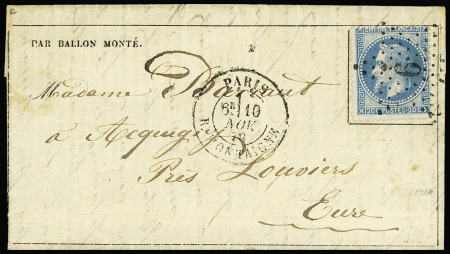 PAR BALLON MONTÉ.
PARIS
6E 10
NOV.
R. MONTAIGNE
Madame
à Acquigny
Près Louviers
Eure
20 POSTES 20